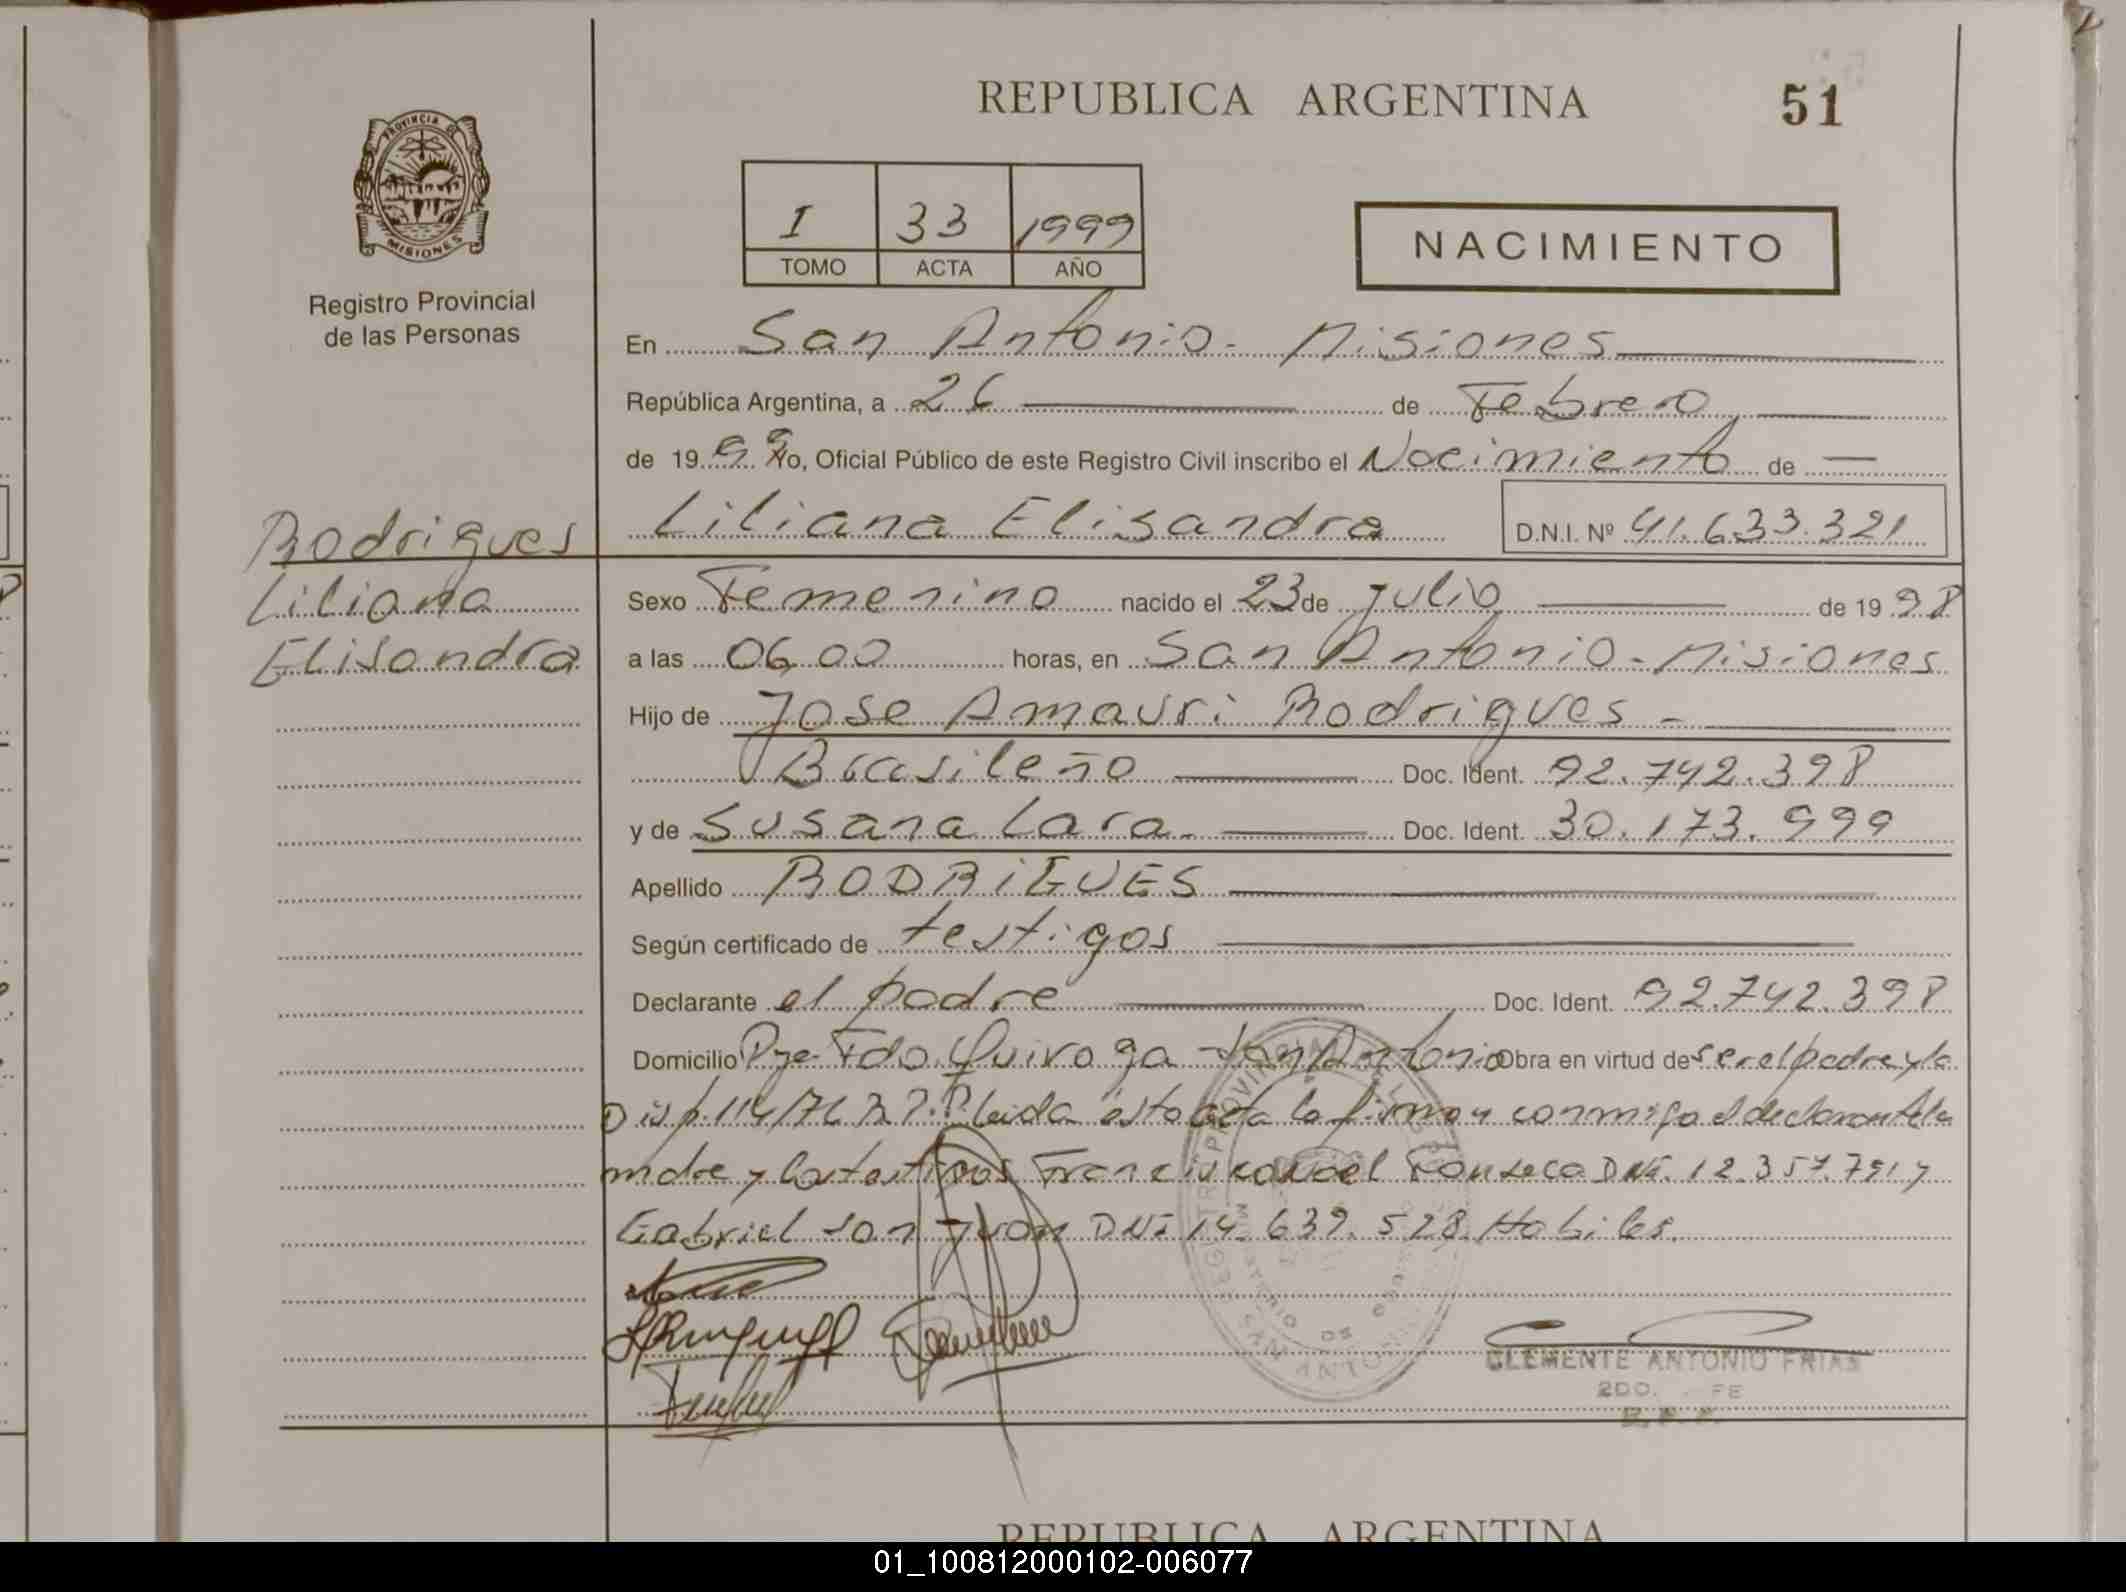 REPUBLICA ARGENTINA
51
PROVINCIA DE
MISIONES
Registro Provincial
de las Personas
I 33 1999
TOMO ACTA AÑO
NACIMIENTO
En San Antonio - Misiones
República Argentina, a 26 de Febrero
de 19 99 Yo, Oficial Público de este Registro Civil inscribo el Nacimiento de
Liliana Elisandra D.N.I. Nº 41.633.321
Rodrigues
Liliana
Elisandra
Sexo Femenino nacido el 23 de Julio de 19 98
a las 06,00 horas, en San Antonio - Misiones
Hijo de Jose Amauri Rodrigues -
Brasileño Doc. Ident. 92.742.398
y de Susana Lara. Doc. Ident. 30.173.999
Apellido RODRIGUES
Según certificado de testigos
Declarante el padre Doc. Ident. 92.742.398
Domicilio Pje Fdo. Quiroga - San Antonio Obra en virtud de ser el padre y la
Disp. 114/76 R.P.P leida esta acta la firman conmigo el declarante la
mdre y los testigos Francisco Fonseca DNi. 12.357.791 y
Gabriel San Juan DNi 14.639.528. Habiles.
CLEMENTE ANTONIO FRIAS
2DO. FE
REPUBLICA ARGENTINA
01_100812000102-006077